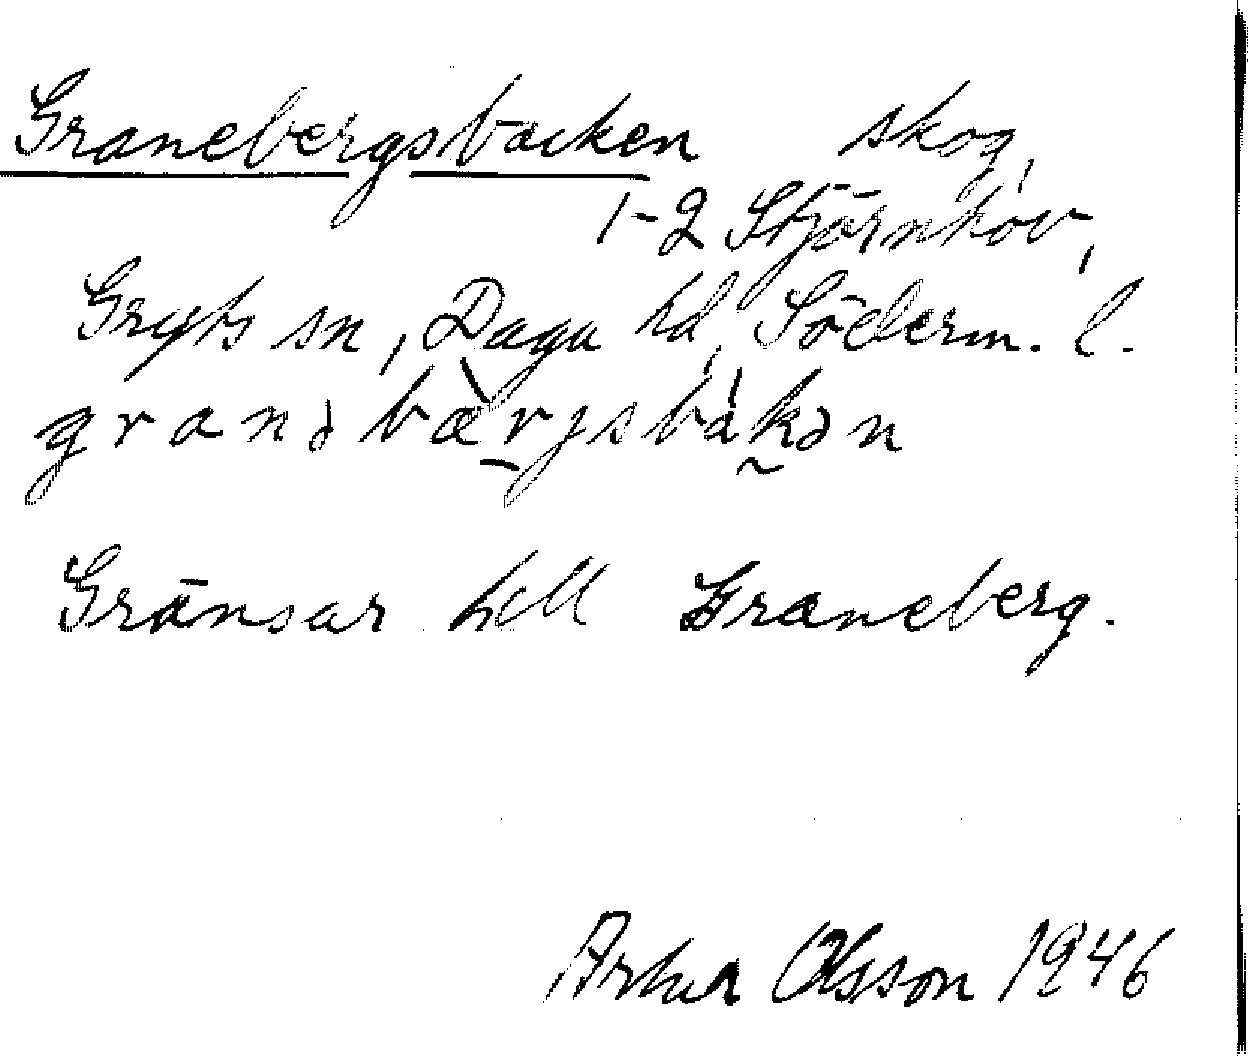 Granebergsbacken skog,
1-2 Stjärnhov,
Gryts sn, Daga hd, Söderm. l.
granəbærjsbakən
Gränsar till Graneberg.
Artur Olsson 1946